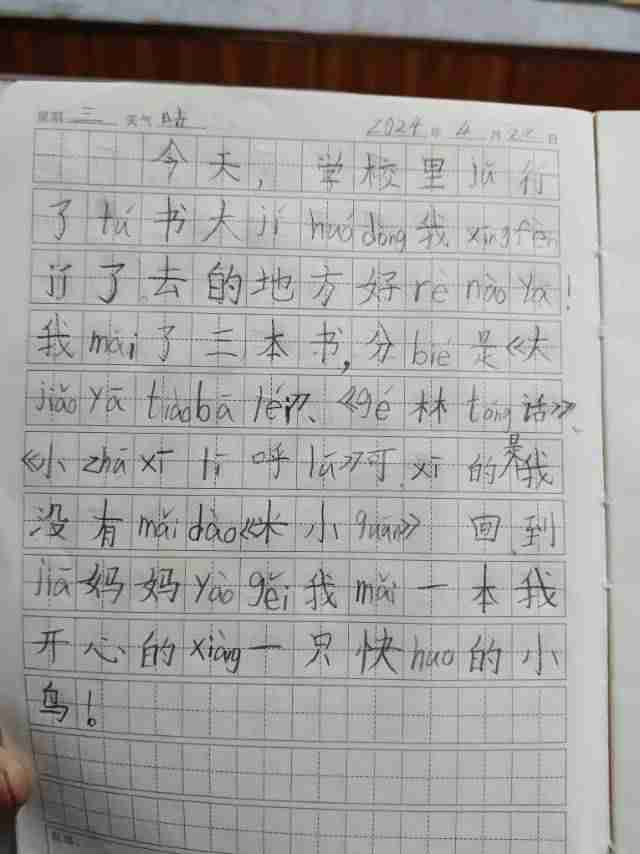 星期 三 天气 晴 2024 年 4 月 22 日
今天，学校里jǔ行
了tú书大jí huó dòng我xīng fèn
jí了去的地方好rè nào yā！
我mǎi了三本书，分bié是《大
jiǎo yā tiào bā léi》、《gé林tóng话》、
《小zhū xī lǐ呼lū》可xī的是我
没有mǎi dào《米小quān》 回到
jiā妈妈yào gěi我mǎi一本我
开心的xiàng一只快huo的小
鸟！